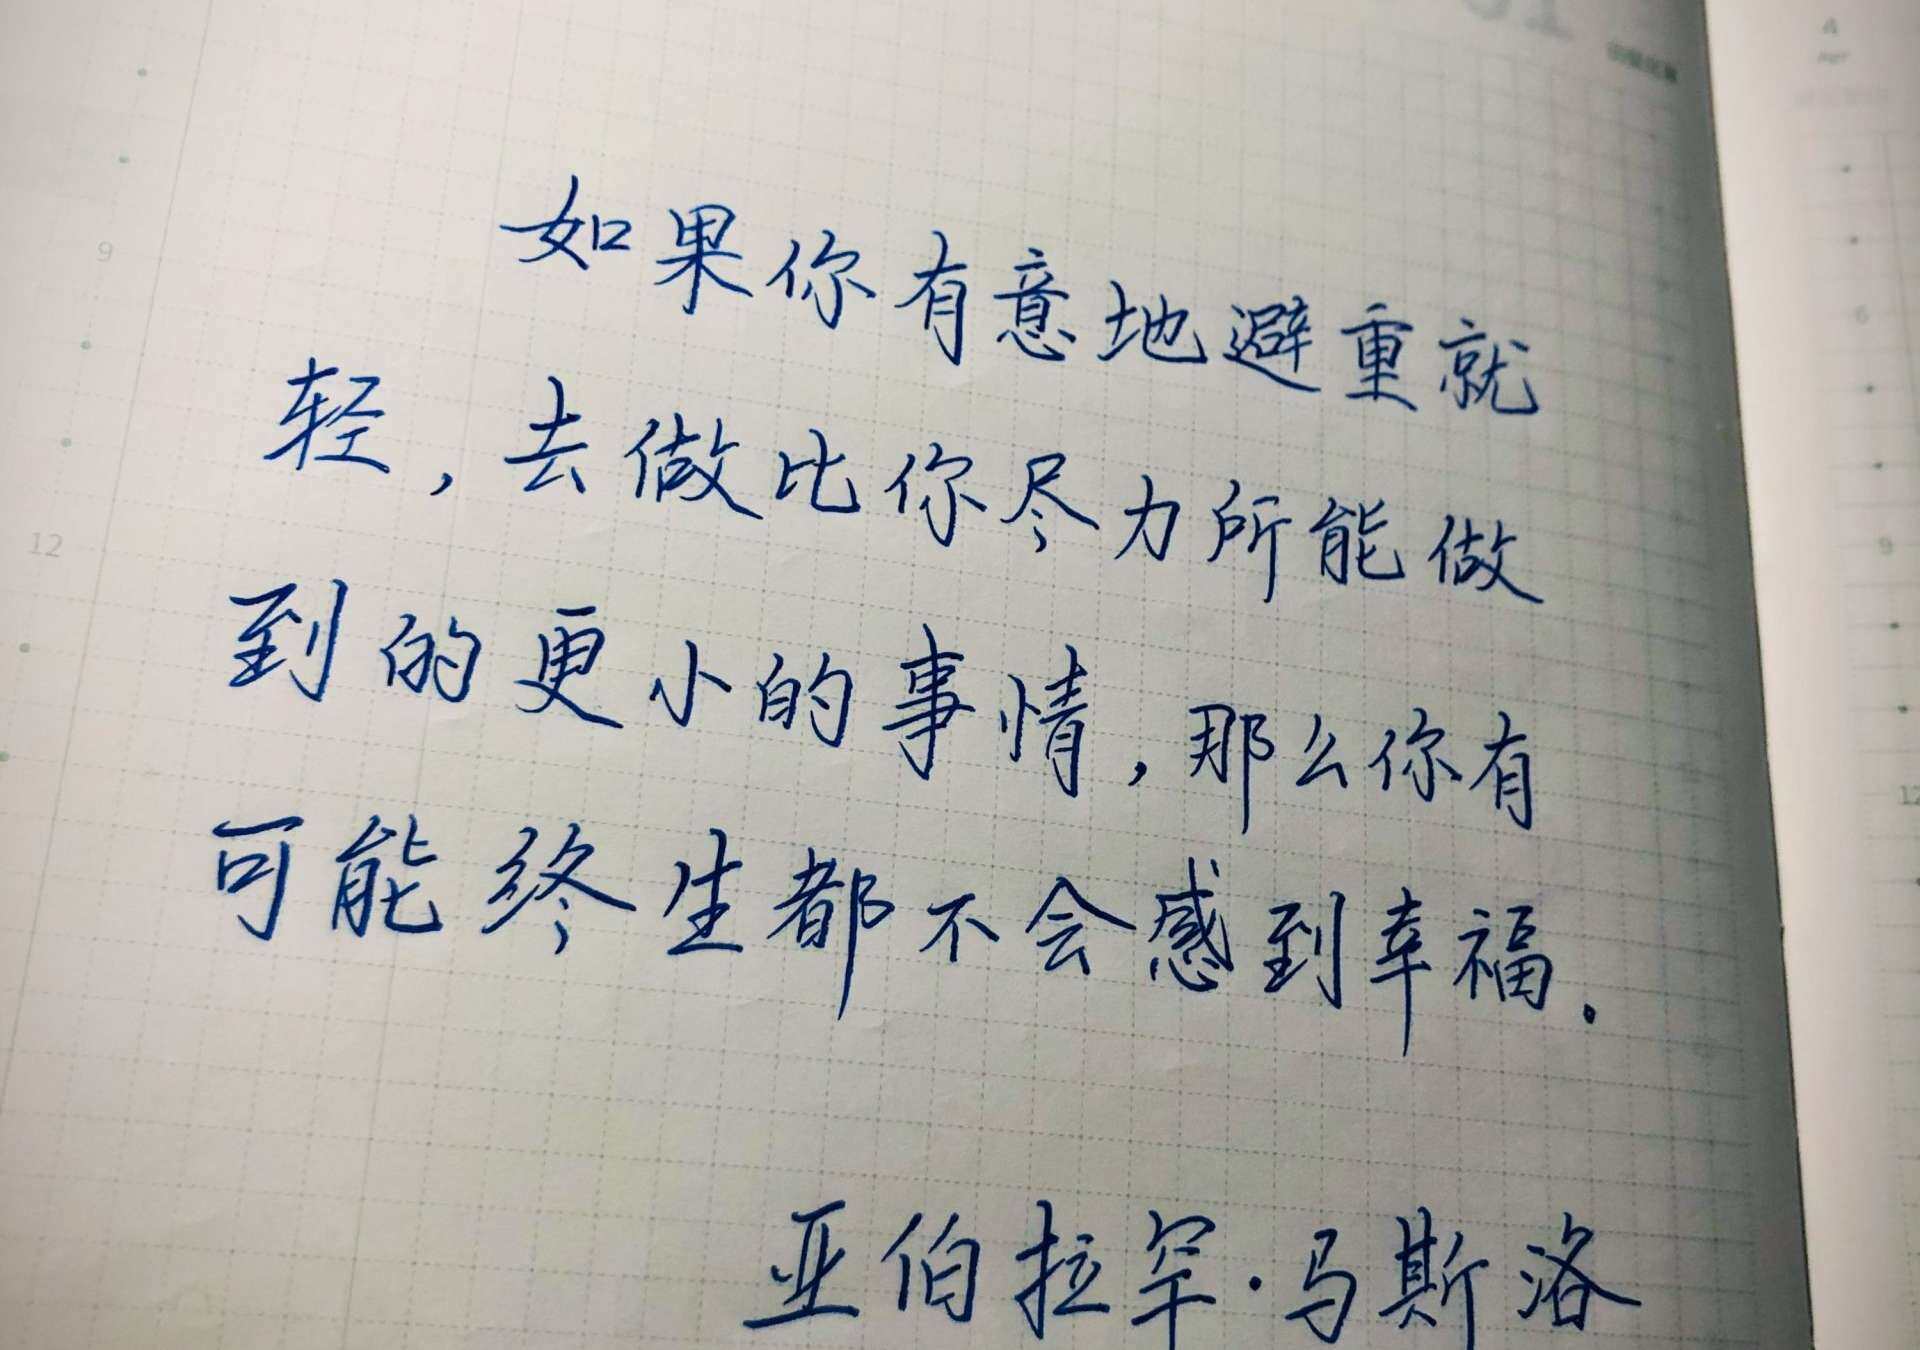 如果你有意地避重就
轻，去做比你尽力所能做
到的更小的事情，那么你有
可能终生都不会感到幸福.
亚伯拉罕·马斯洛
9
12
6
9
12